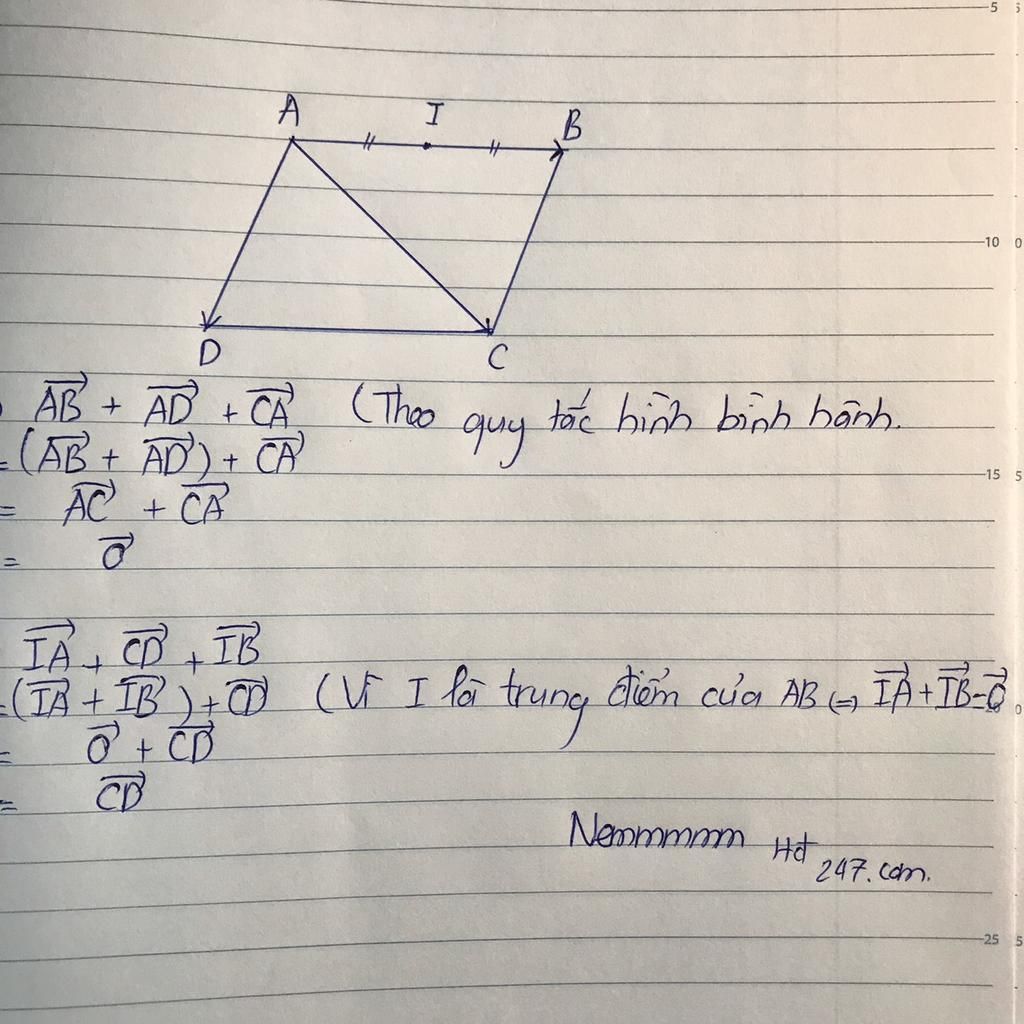 5
5
A I B
10
0
D C
) \overrightarrow{AB} + \overrightarrow{AD} + \overrightarrow{CA} (Theo quy tắc hình bình hành.
= (\overrightarrow{AB} + \overrightarrow{AD}) + \overrightarrow{CA}
15
5
= \overrightarrow{AC} + \overrightarrow{CA}
= \overrightarrow{O}
\overrightarrow{IA} + \overrightarrow{CD} + \overrightarrow{IB}
= (\overrightarrow{IA} + \overrightarrow{IB}) + \overrightarrow{CD} (Vì I là trung điểm của AB (=) \overrightarrow{IA} + \overrightarrow{IB} = \overrightarrow{O}
0
= \overrightarrow{O} + \overrightarrow{CD}
= \overrightarrow{CD}
Nemmmmm Hd
247.com.
25
5